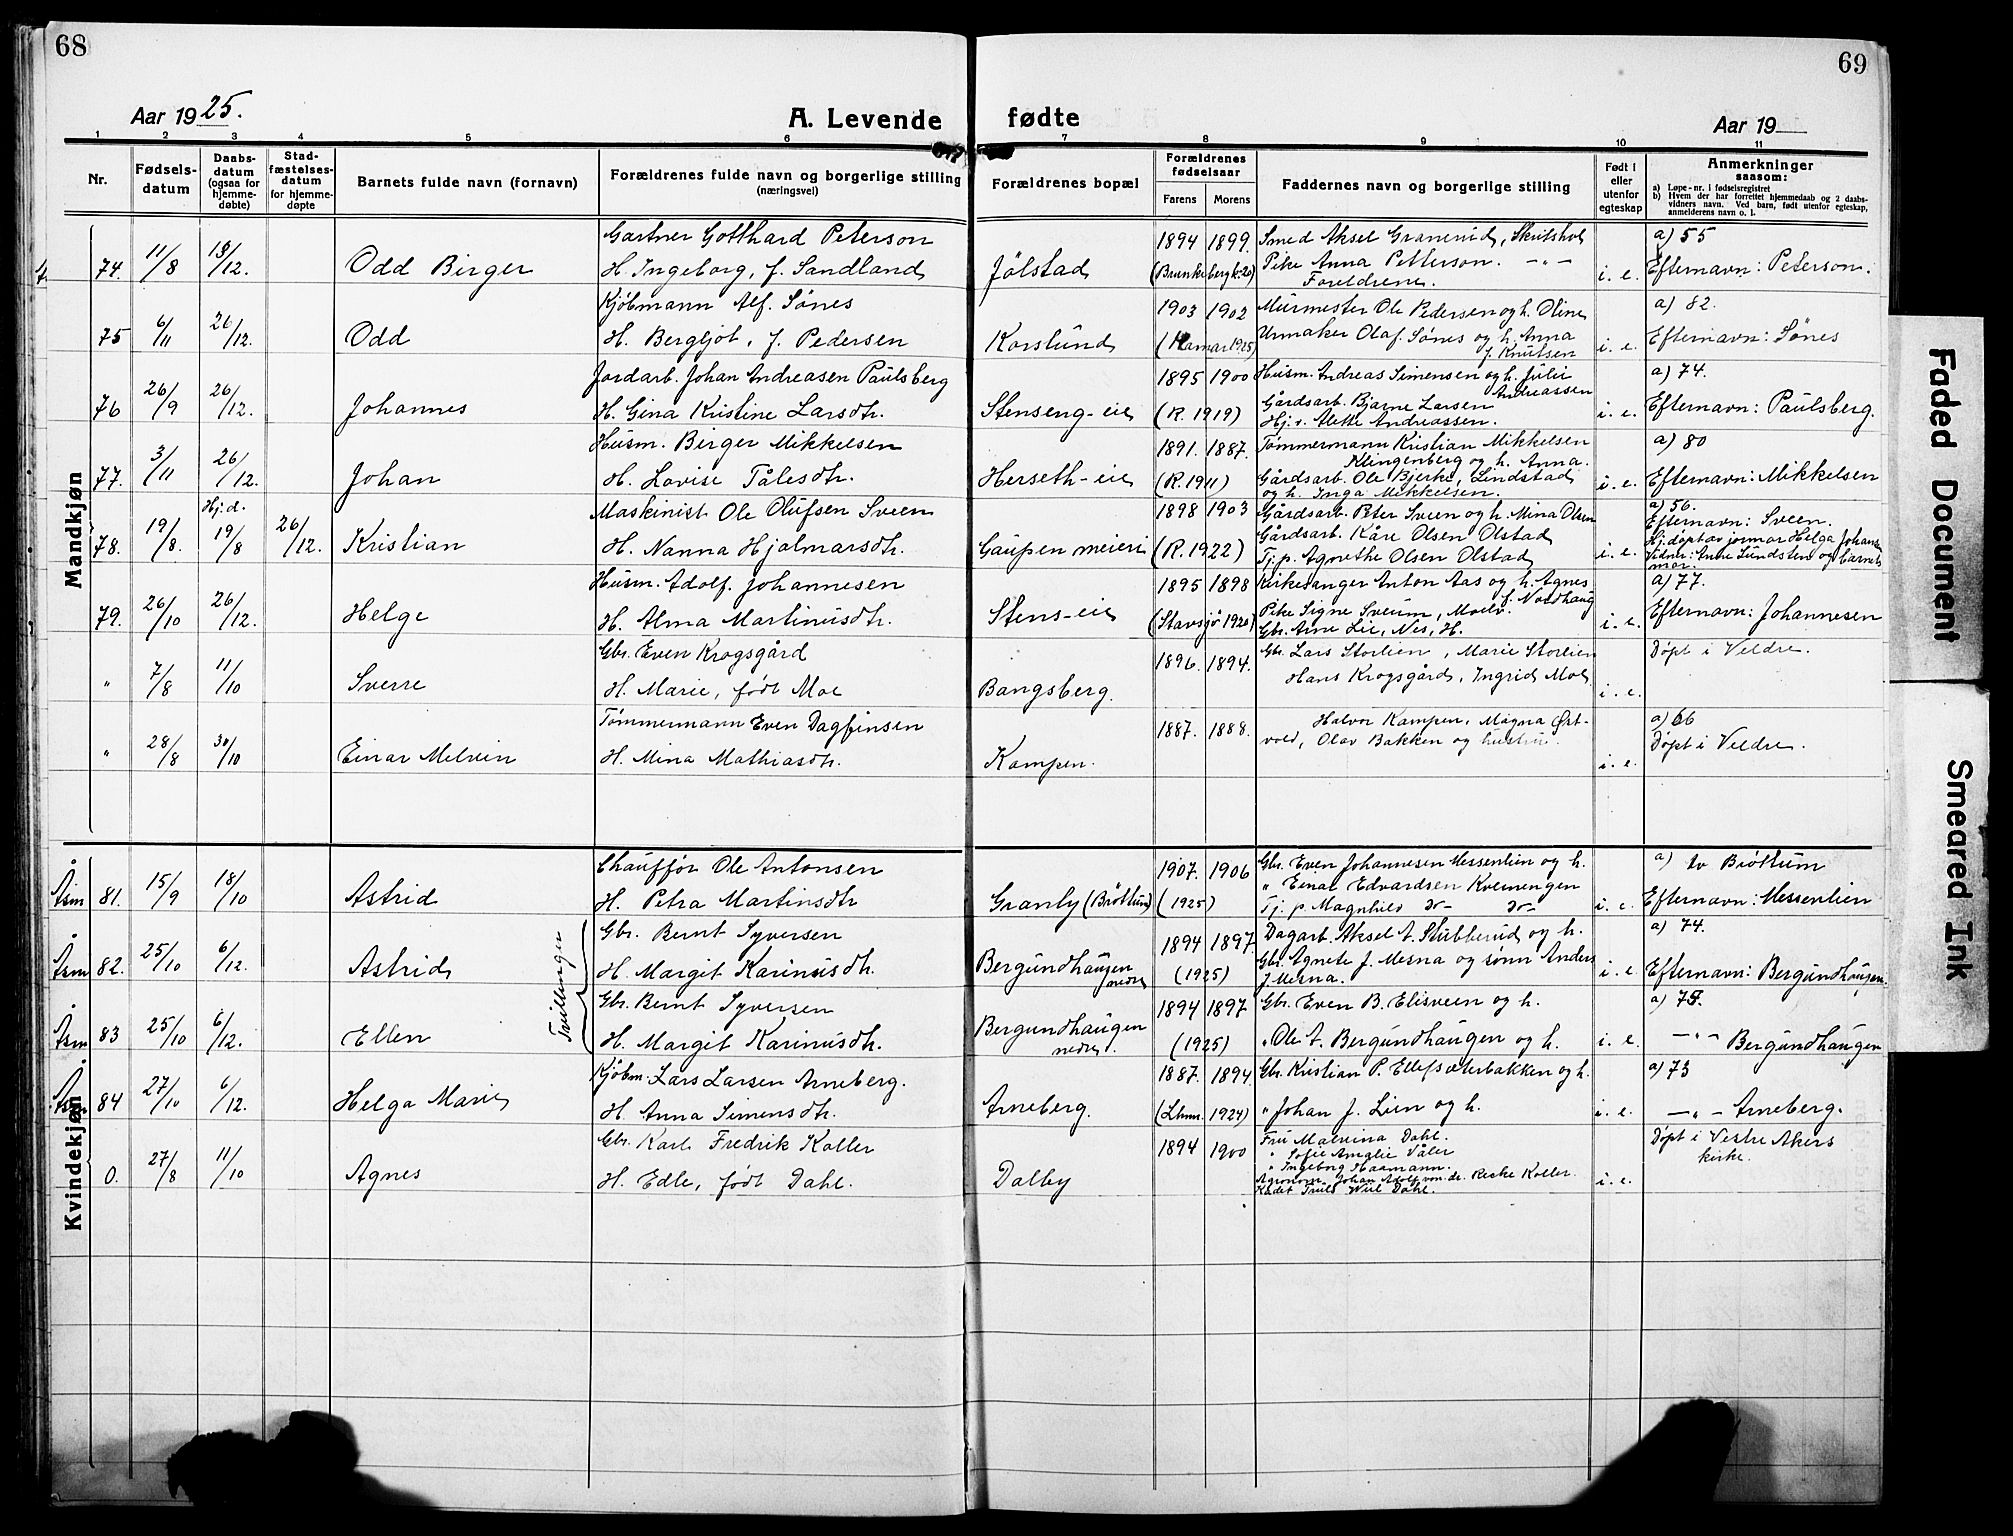 68
69
Aar 1925.
A. Levende fødte
Aar 19
1 2 3 4 5 6 7 8 9 10 11
Nr.
Fødsels-
datum
Daabs-
datum
(ogsaa for
hjemme-
døbte)
Stad-
fæstelses-
datum
for hjemme-
døpte
Barnets fulde navn (fornavn)
Forældrenes fulde navn og borgerlige stilling
(næringsvei)
Forældrenes bopæl
Forældrenes
fødselsaar
Farens Morens
Faddernes navn og borgerlige stilling
Født i
eller
utenfor
egteskap
Anmerkninger
saasom:
a) Løpe-nr. i fødselsregistret
b) Hvem der har forrettet hjemmedaab og 2 daabs-
vidners navn. Ved barn, født utenfor egteskap,
anmelderens navn o. l.
Mandkjøn
Gartner Gotthard Peterson 1894 1899. Smed Aksel Granerud, Skritshol a) 55
74. 11/8 13/12. Odd Birger H. Ingeborg, f. Sandland Jølstad (Brunkeberg k. 20) Pike Anna Petterson. — " — i. e. Efternavn: Peterson.
Foreldrene.
Kjøbmann Alf. Sönes 1903 1902 Murmester Ole Pedersen og h. Oline a) 82.
75 6/11 26/12. Odd H. Bergljot, f. Pedersen Korslund (Hamar 1925) Urmaker Olaf Sönes og h. Anna i. e. Efternavn: Sönes
f. Knutsen
Jordarb. Johan Andreasen Paulsberg 1895 1900 Husm. Andreas Simensen og h. Julie a) 74.
Andreassen
76 26/9 26/12. Johannes H. Gina Kristine Larsdtr. Stenseng-eie (R. 1919) Gårdsarb. Bjarne Larsen i. e. Efternavn: Paulsberg.
Hj.v. Alette Andreassen.
Husm. Birger Mikkelsen 1891. 1887. Tømmermann Kristian Mikkelsen a) 80
Klingenberg og h. Anna.
77. 3/11 26/12. Johan H. Lovise Tålesdtr. Herseth-eie (R. 1911) Gårdsarb. Ole Bjerke, Lindstad i. e. Efternavn: Mikkelsen
og h. Inga Mikkelsen.
Hj.d. Maskinist Ole Olufsen Sveen 1898 1903 Gårdsarb. Peter Sveen og h. Mina Olsen a) 56.
Efternavn: Sveen.
78. 19/8. 19/8 26/12. Kristian H. Nanna Hjalmarsdtr. Gaupen meieri (R. 1922) Gårdsarb. Kåre Olsen Olstad i. e. Hj. døpt av jormor Helga Johansen
Tj.p. Agnethe Olsen Olstad Vidner: Anne Lundsten og barnets
mor.
Husm. Adolf Johannesen 1895 1898 Kirkesanger Anton Aas og h. Agnes a) 77.
f. Nordhaug
79. 26/10 26/12. Helge H. Alma Martinusdtr. Stens-eie (Stavsjø 1920) Pike Signe Sveum, Moelv. i. e. Efternavn: Johannesen
Gbr. Arne Lie, Nes, H.
Gbr. Even Krogsgård 1896. 1894. Gbr. Lars Storlien, Marie Storlien Døpt i Veldre.
" 7/8 11/10 Sverre H. Marie, født Moe Bangsberg. Hans Krogsgård, Ingrid Moe i. e.
Tömmermann Even Dagfinsen 1887. 1888. Halvor Kampen, Magna Øst- a) 66
" 28/8 30/10 Einar Melvin H. Mina Mathiasdtr. Kampen. vold, Olav Bakken og hustru. i. e. Døpt i Veldre.
Kvindekjøn
Chauffør Ole Antonsen 1907. 1906 Gbr. Even Johannesen Messenlien og h. a) tv Brøttum
Åsm 81. 15/9 18/10 Astrid H. Petra Martinsdtr Granby (Brøttum) (1925) " Einar Edvardsen Kverningen i. e. Efternavn: Messenlien
Tj. p Magnhild do- do-
Tvillinger
Gbr. Bernt Syversen 1894 1897 Dagarb. Aksel A. Stubberud og h. a) 74.
Åsm 82. 25/10 6/12. Astrid H. Margit Karinusdtr. Bergundhaugen nedre (1925) Gbr. Agnete J. Mesna og sønn Anders i. e. Efternavn: Bergundhaugen.
J. Mesna.
Gbr. Bernt Syversen 1894 1897 Gbr. Even B. Elisveen og h. a) 75.
Åsm 83 25/10 6/12. Ellen H. Margit Karinusdtr. Bergundhaugen nedre. (1925) " Ole A. Bergundhaugen og h. i. e. — " — Bergundhaugen
Kjøbm. Lars Larsen Arneberg. 1887. 1894 Gbr. Kristian P. Ellefsæterbakken og h. a) 73
Åsm 84 27/10 6/12. Helga Marie H. Anna Simensdtr. Arneberg. (Lhmr. 1924) " Johan J. Lien og h. i. e. — " — Arneberg.
Gbr. Karl Fredrik Koller 1894 1900 Fru Malvina Dahl. Døpt i Vestre Akers
" Sofie Amalie Våler kirke.
0. 27/8 11/10 Agnes H. Edle, født Dahl. Dalby " Ingeborg Haamann. i. e.
Agronom Johan Adolf von der Recke Koller
Kadet Truls Wiel Dahl.
Faded Document
Smeared Ink